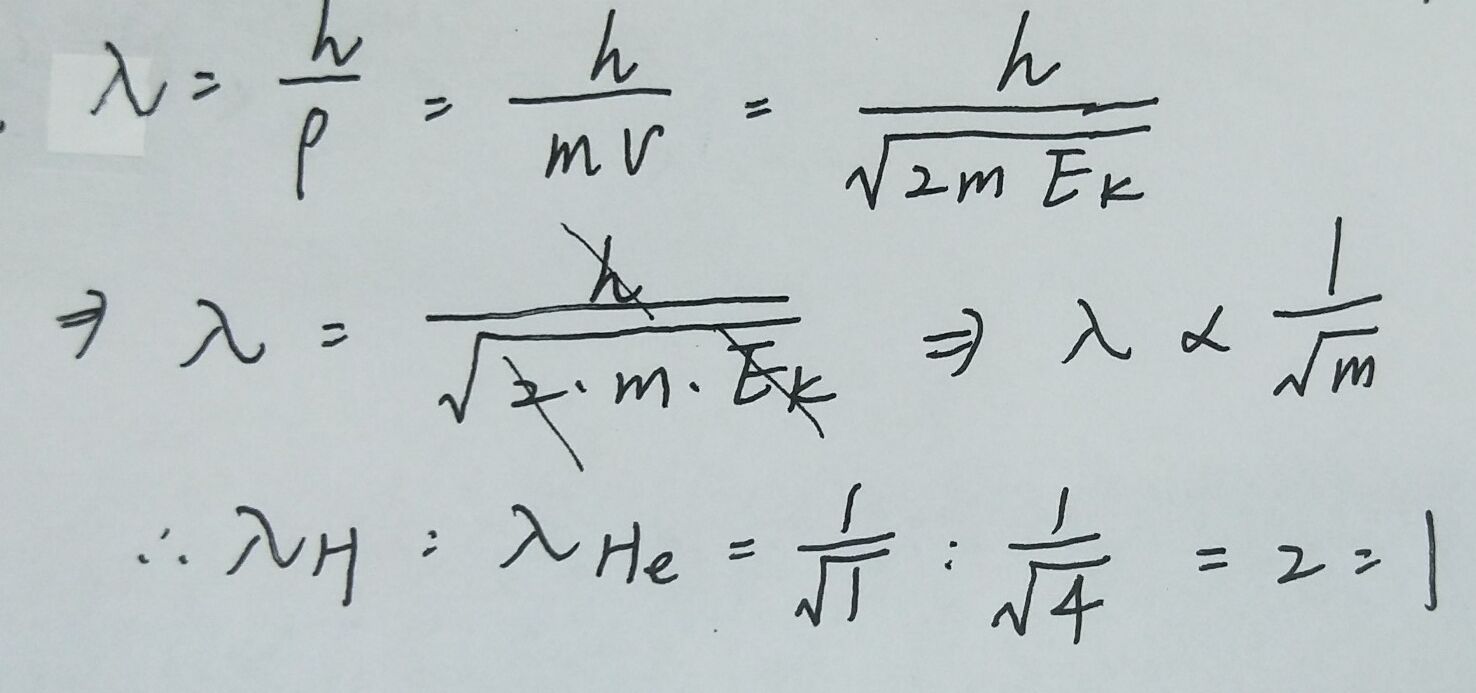 λ = h/p = h/mv = h/√(2m Ek)
⇒ λ = h/√(2·m·Ek) ⇒ λ ∝ 1/√m
∴ λH : λHe = 1/√1 : 1/√4 = 2 = 1